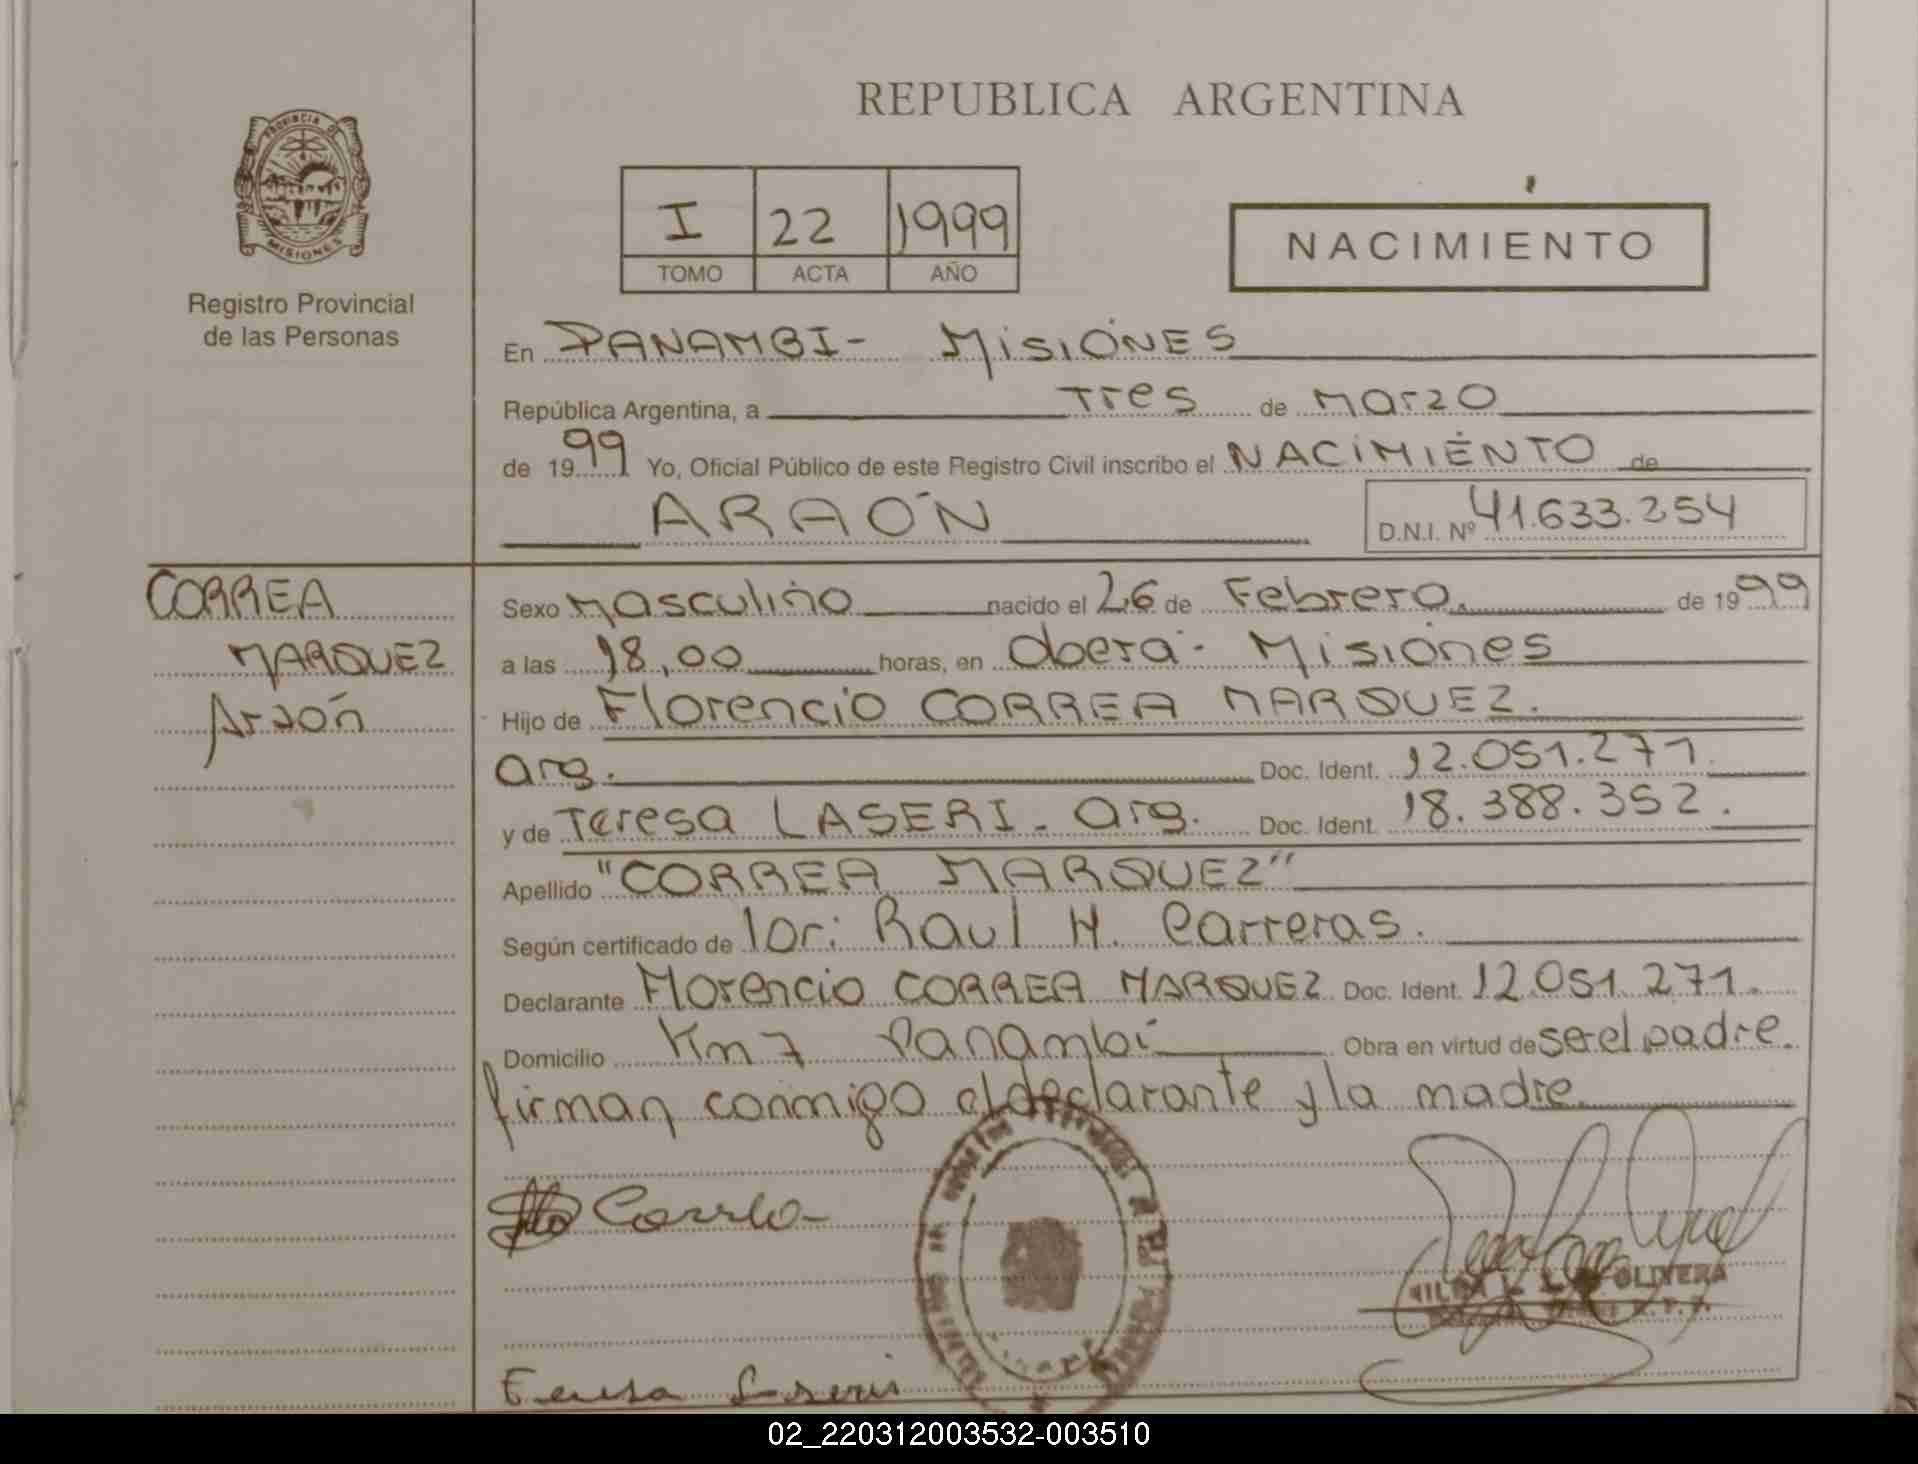 REPUBLICA ARGENTINA
PROVINCIA DE
MISIONES
Registro Provincial
de las Personas
I 22 1999
TOMO ACTA AÑO
NACIMIENTO
En PANAMBI- MISIONES
República Argentina, a Tres de Marzo
de 1999 Yo, Oficial Público de este Registro Civil inscribo el NACIMIENTO de
ARAÓN
D.N.I. Nº 41.633.254
CORREA
MARQUEZ
Araón
Sexo Masculino nacido el 26 de Febrero. de 1999
a las 18,00 horas, en Oberá- Misiones
Hijo de Florencio CORREA MARQUEZ.
arg. Doc. Ident. 12.051.271.
y de Teresa LASERI. arg. Doc. Ident. 18.388.352.
Apellido "CORREA MARQUEZ"
Según certificado de Raul H. Carreras.
Declarante Florencio CORREA MARQUEZ. Doc. Ident. 12.051.271.
Domicilio Km 7 Panambi Obra en virtud de ser el padre.
firman conmigo el declarante y la madre.
OLIVERA
02_220312003532-003510